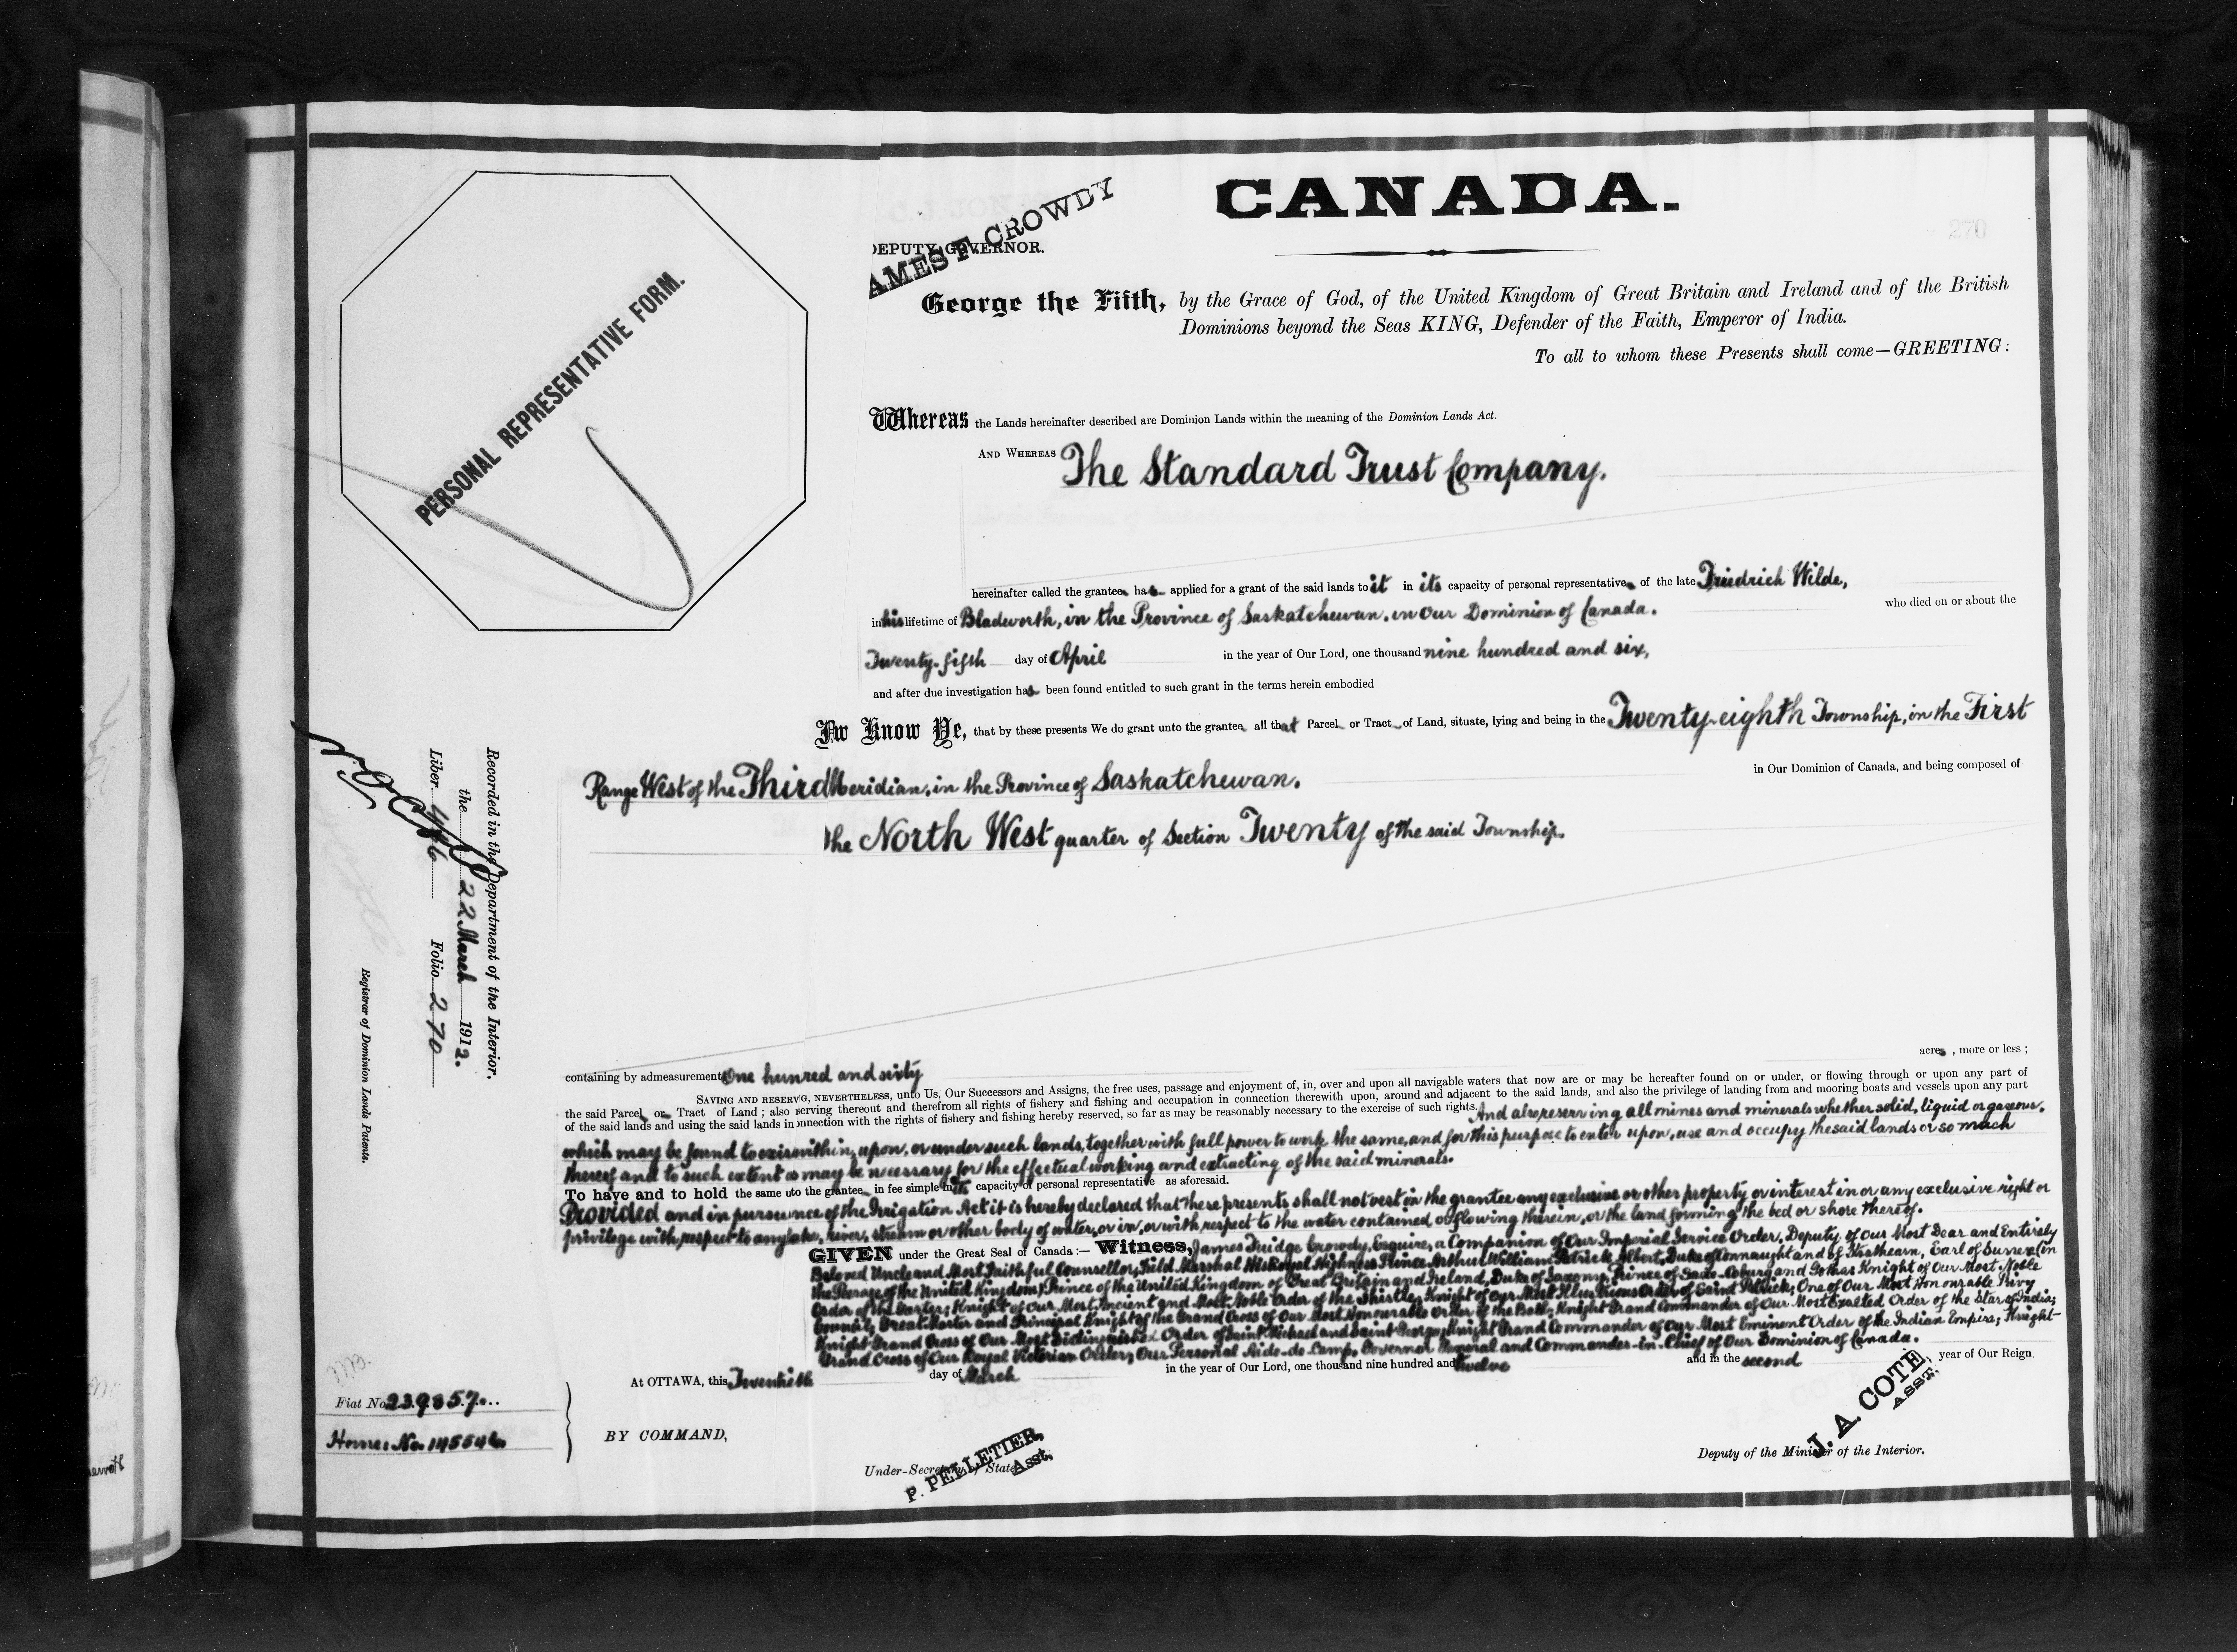 CANADA.
270
JAMES F. CROWDY
DEPUTY GOVERNOR.
George the Fifth, by the Grace of God, of the United Kingdom of Great Britain and Ireland and of the British
Dominions beyond the Seas KING, Defender of the Faith, Emperor of India.
To all to whom these Presents shall come—GREETING:
PERSONAL REPRESENTATIVE FORM.
Whereas the Lands hereinafter described are Dominion Lands within the meaning of the Dominion Lands Act.
AND WHEREAS The Standard Trust Company.
hereinafter called the grantee has applied for a grant of the said lands to it in its capacity of personal representative of the late Friedrich Wilde,
in his lifetime of Bladworth, in the Province of Saskatchewan, in Our Dominion of Canada. who died on or about the
Twenty-fifth day of April in the year of Our Lord, one thousand nine hundred and six,
and after due investigation has been found entitled to such grant in the terms herein embodied
Know Ye, that by these presents We do grant unto the grantee all that Parcel or Tract of Land, situate, lying and being in the Twenty-eighth Township, in the First
Range West of the Third Meridian, in the Province of Saskatchewan. in Our Dominion of Canada, and being composed of
the North West quarter of Section Twenty of the said Township.
containing by admeasurement One hunred and sixty acres, more or less;
SAVING AND RESERVG, NEVERTHELESS, unto Us, Our Successors and Assigns, the free uses, passage and enjoyment of, in, over and upon all navigable waters that now are or may be hereafter found on or under, or flowing through or upon any part of
the said Parcel or Tract of Land; also serving thereout and therefrom all rights of fishery and fishing and occupation in connection therewith upon, around and adjacent to the said lands, and also the privilege of landing from and mooring boats and vessels upon any part
of the said lands and using the said lands in onnection with the rights of fishery and fishing hereby reserved, so far as may be reasonably necessary to the exercise of such rights. And also, reserving all mines and minerals whether solid, liquid or gaseous,
which may be found to exis within, upon, or under such lands, together with full power to work the same, and for this purpose to enter upon, use and occupy the said lands or so much
thereof and to such extent as may be necessary for the effectual working and extracting of the said minerals.
To have and to hold the same uto the grantee in fee simple in its capacity of personal representative as aforesaid.
Provided and in pursuance of the Irrigation Act it is hereby declared that these presents shall not vest in the grantee any exclusive or other property or interest in or any exclusive right or
privilege with respect to any lake, river, stream or other body of water, or in, or with respect to the water contained or flowing therein, or the land forming the bed or shore thereof.
GIVEN under the Great Seal of Canada:— Witness, James Fuidge Crowdy, Esquire, a Companion of Our Imperial Service Order, Deputy of Our Most Dear and Entirely
Beloved Uncle and Most Faithful Counsellor, Field Marshal His Royal Highness Prince Arthur William Patrick Albert, Duke of Connaught and of Strathearn, Earl of Sussex (in
the Peerage of the United Kingdom) Prince of the United Kingdom of Great Britain and Ireland, Duke of Saxony, Prince of Saxe-Coburg and Gotha; Knight of Our Most Noble
Order of the Garter; Knight of Our Most Ancient and Most Noble Order of the Thistle; Knight of Our Most Illustrious Order of Saint Patrick; One of Our Most Honourable Privy
Council; Great Master and Principal Knight of the Grand Cross of Our Most Honourable Order of the Bath; Knight Grand Commander of Our Most Exalted Order of the Star of India;
Knight Grand Cross of Our Most Distinguished Order of Saint Michael and Saint George; Knight Grand Commander of Our Most Eminent Order of the Indian Empire; Knight
Grand Cross of Our Royal Victorian Order; Our Personal Aide-de-Camp, Governor General and Commander-in-Chief of Our Dominion of Canada.
At OTTAWA, this Twentieth day of March in the year of Our Lord, one thousand nine hundred and twelve and in the second year of Our Reign.
BY COMMAND,
P. PELLETIER,
Asst.
Under-Secretary of State
J. A. COTE,
ASST.
Deputy of the Minister of the Interior.
Fiat No. 239857
Home: No. 145546
Recorded in the Department of the Interior,
the 22 March 1912.
Liber 446 Folio 270
N.O. Coté
Registrar of Dominion Lands Patents.